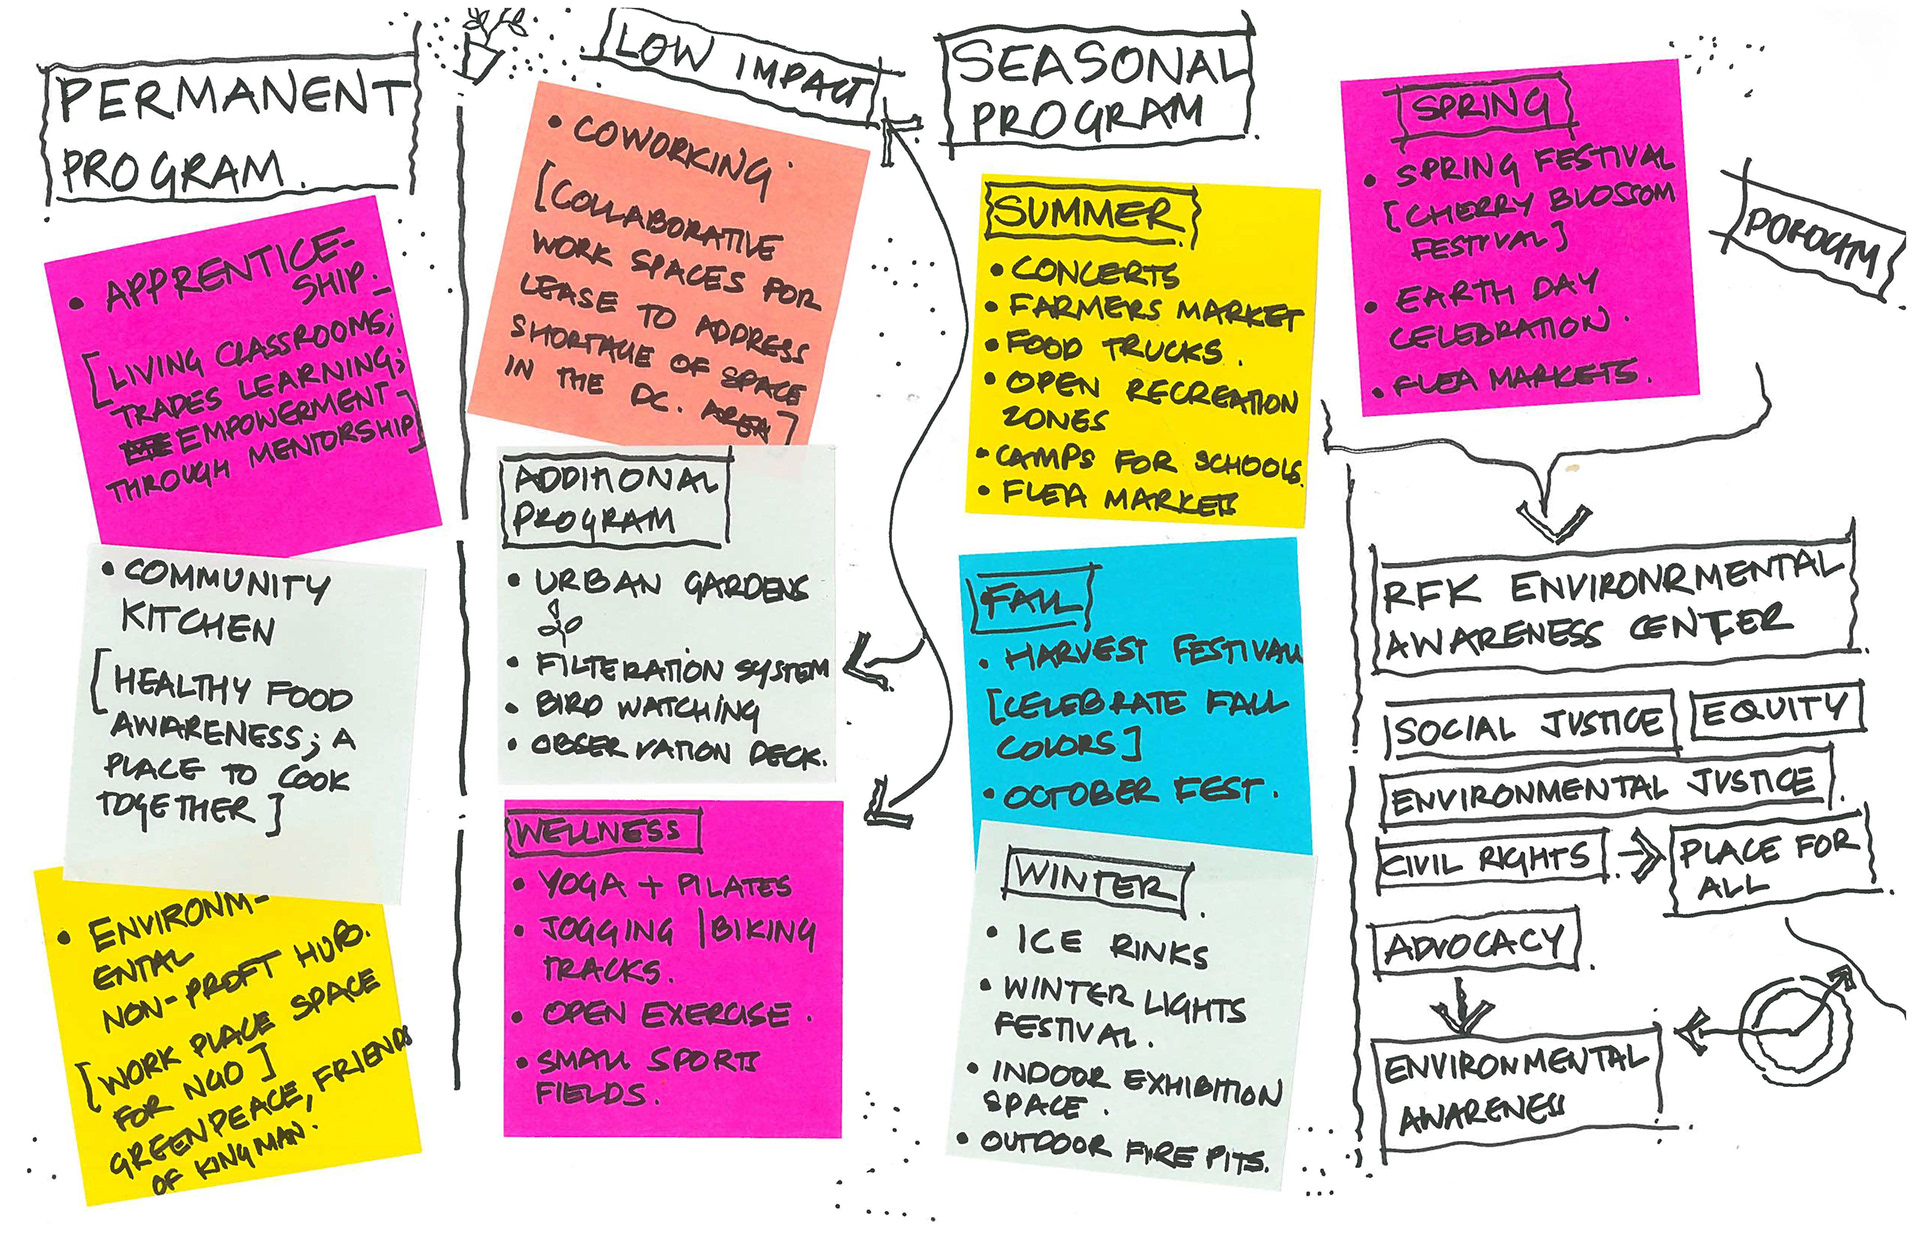 PERMANENT
PROGRAM.
• APPRENTICE-
SHIP.
[LIVING CLASSROOMS;
TRADES LEARNING;
EMPOWERMENT
THROUGH MENTORSHIP]
• COMMUNITY
KITCHEN
[HEALTHY FOOD
AWARENESS; A
PLACE TO COOK
TOGETHER]
• ENVIRONM-
ENTAL
NON-PROFT HUB.
[WORK PLACE SPACE
FOR NGO]
GREENPEACE, FRIENDS
OF KINGMAN.
LOW IMPACT
• COWORKING
[COLLABORATIVE
WORK SPACES FOR
LEASE TO ADDRESS
SHORTAGE OF SPACE
IN THE DC. AREA]
ADDITIONAL
PROGRAM
• URBAN GARDENS
• FILTERATION SYSTEM
• BIRD WATCHING
• OBSERVATION DECK.
WELLNESS
• YOGA + PILATES
• JOGGING | BIKING
TRACKS.
• OPEN EXERCISE.
• SMALL SPORTS
FIELDS.
SEASONAL
PROGRAM
SUMMER
• CONCERTS
• FARMERS MARKET
• FOOD TRUCKS.
• OPEN RECREATION
ZONES
• CAMPS FOR SCHOOLS.
• FLEA MARKETS
FALL
• HARVEST FESTIVAL
[CELEBRATE FALL
COLORS]
• OCTOBER FEST.
WINTER
• ICE RINKS
• WINTER LIGHTS
FESTIVAL.
• INDOOR EXHIBITION
SPACE.
• OUTDOOR FIRE PITS.
SPRING
• SPRING FESTIVAL
[CHERRY BLOSSOM
FESTIVAL]
• EARTH DAY
CELEBRATION.
• FLEA MARKETS.
RFK ENVIRONRMENTAL
AWARENESS CENTER
SOCIAL JUSTICE
EQUITY
ENVIRONMENTAL JUSTICE
CIVIL RIGHTS
PLACE FOR
ALL
ADVOCACY
ENVIRONMENTAL
AWARENESS